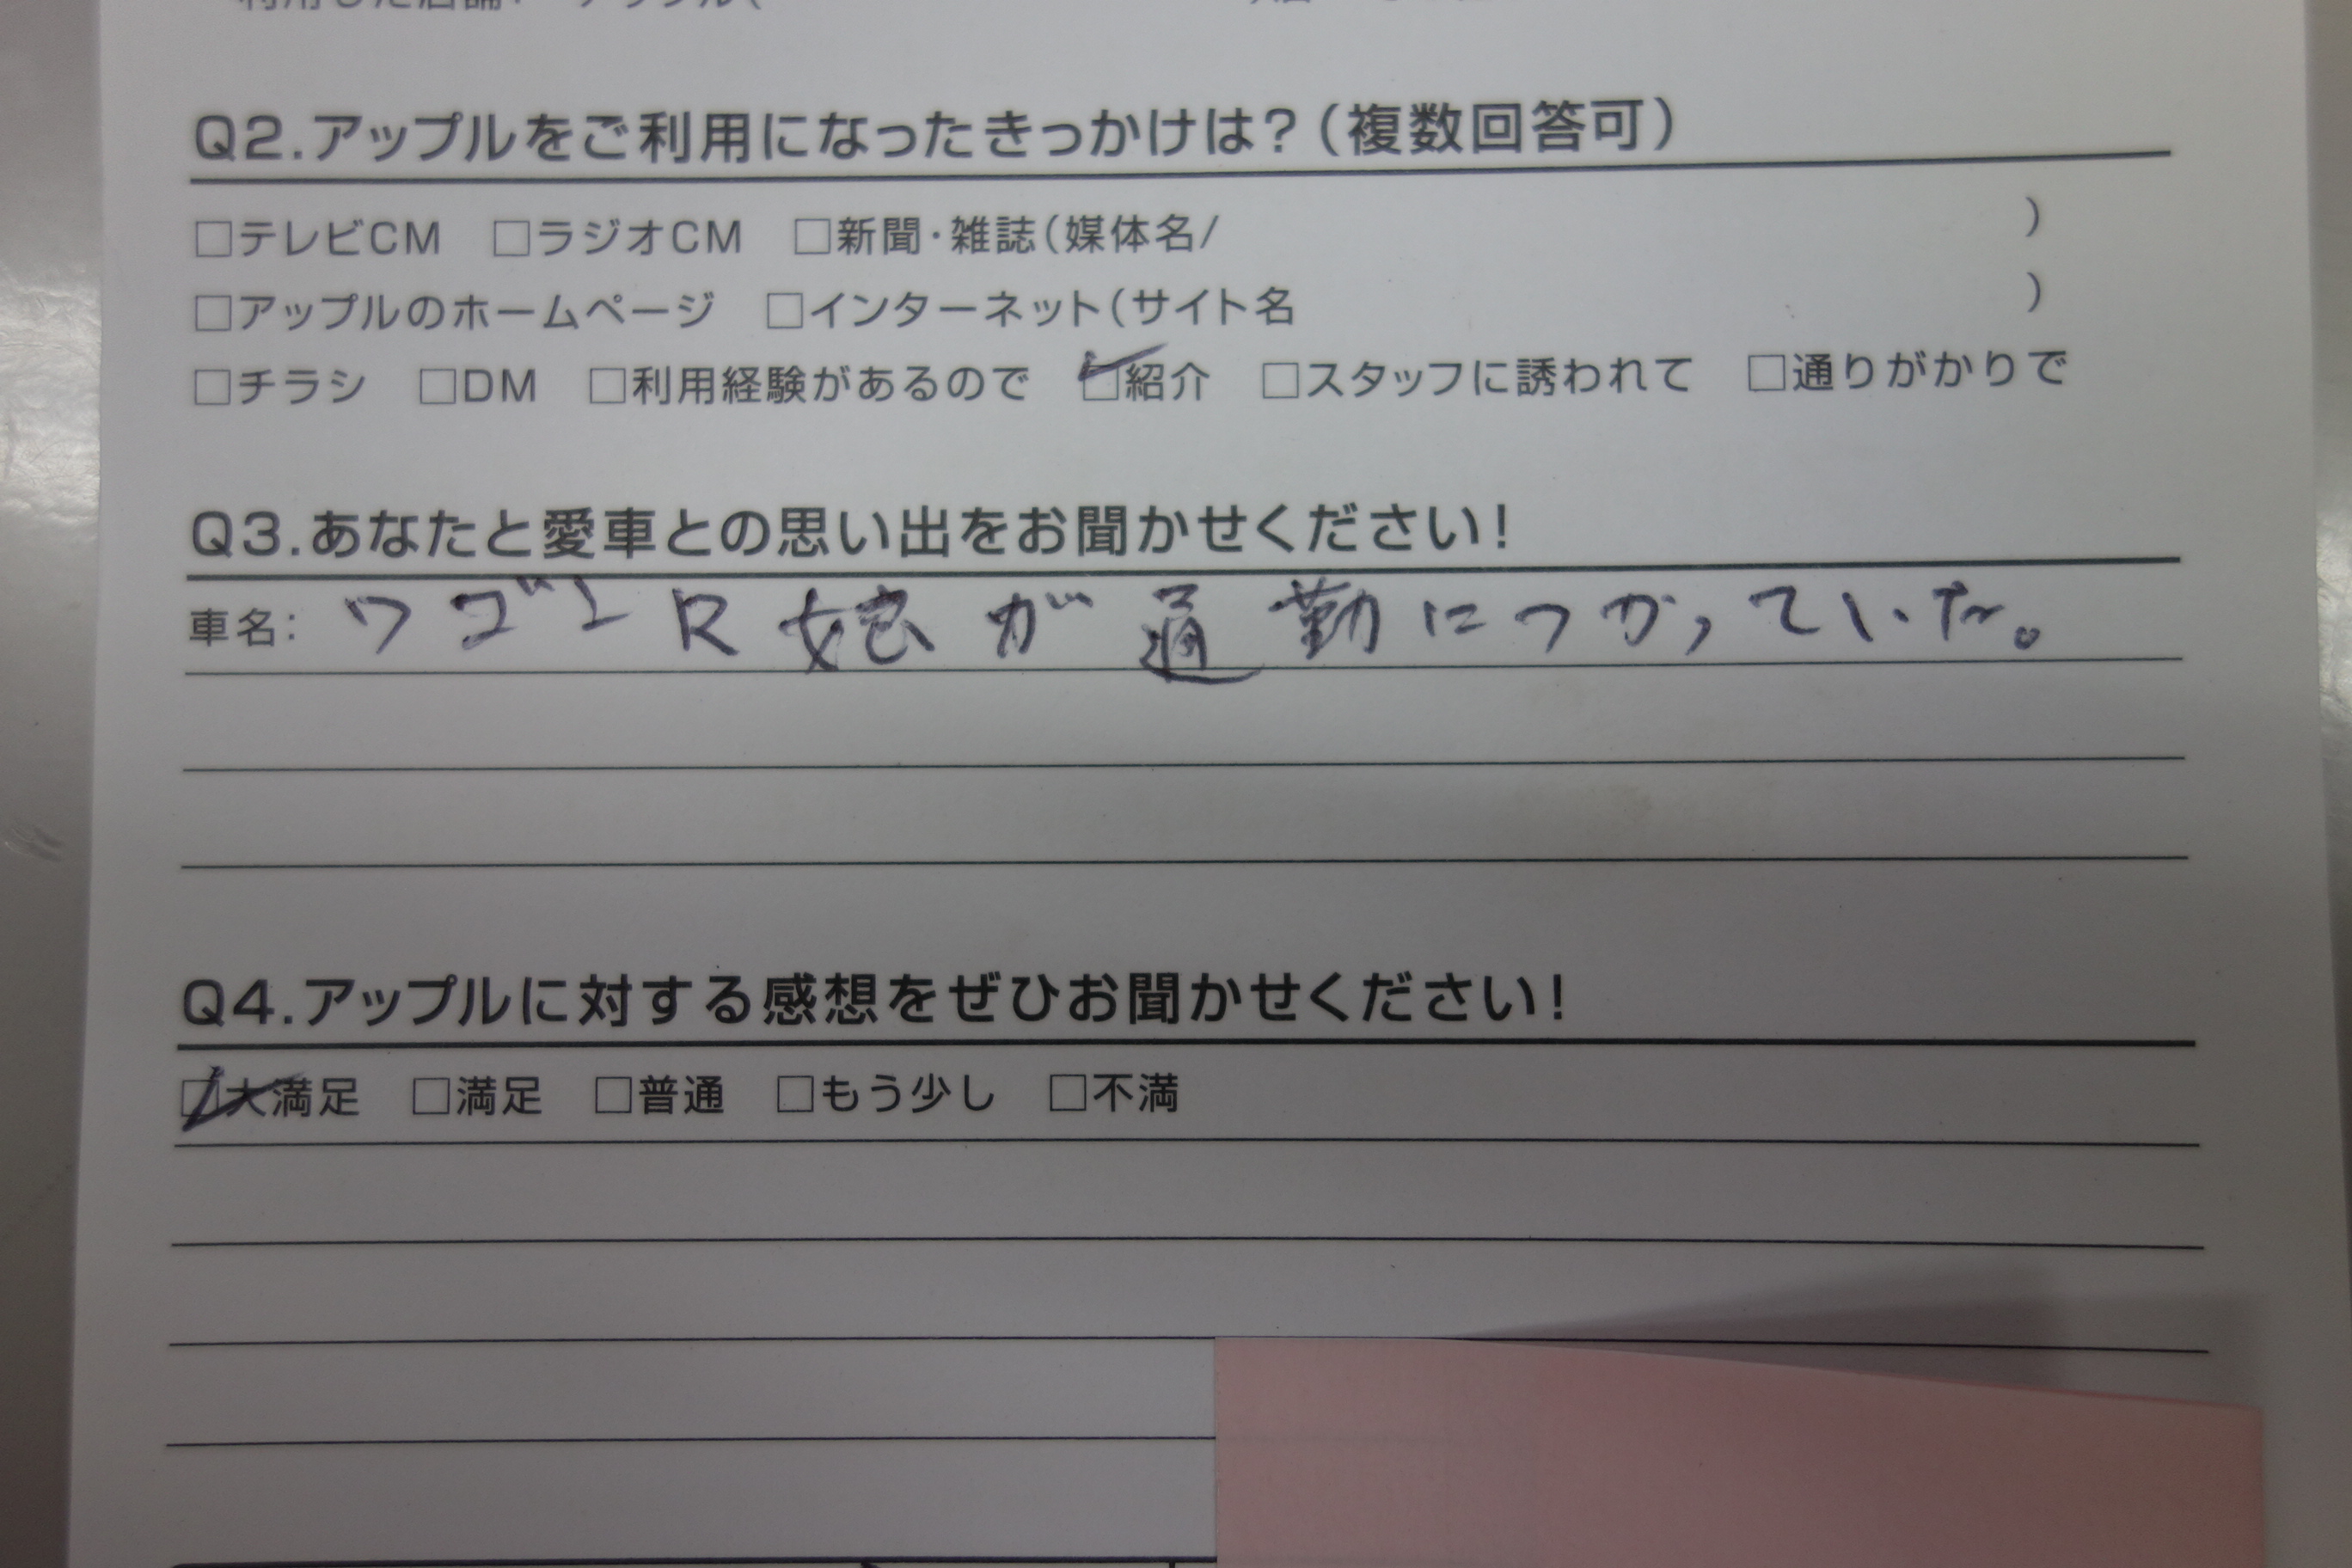 利用した店舗: アップル(
Q2.アップルをご利用になったきっかけは?(複数回答可)
□テレビCM □ラジオCM □新聞・雑誌(媒体名/ )
□アップルのホームページ □インターネット(サイト名 )
□チラシ □DM □利用経験があるので ☑紹介 □スタッフに誘われて □通りがかりで
Q3.あなたと愛車との思い出をお聞かせください!
車名: ワゴンR 娘が通勤につかっていた。
Q4.アップルに対する感想をぜひお聞かせください!
☑大満足 □満足 □普通 □もう少し □不満